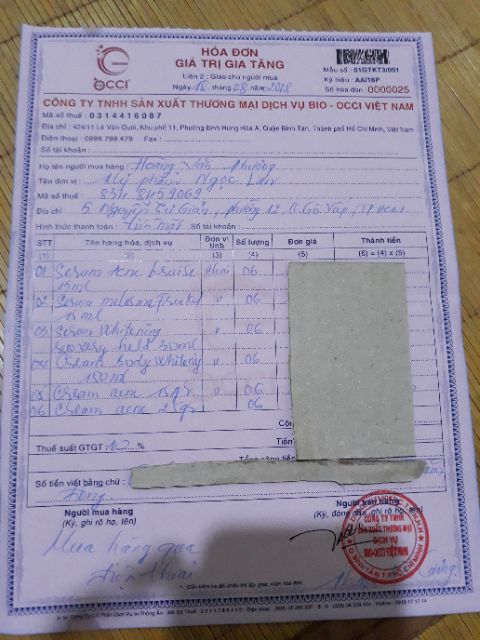 HÓA ĐƠN
GIÁ TRỊ GIA TĂNG
Liên 2: Giao cho người mua
Ngày 18 tháng 08 năm 2018
Mẫu số: 01GTKT3/001
Ký hiệu: AA/18P
Số hóa đơn 0000025
OCCI
CÔNG TY TNHH SẢN XUẤT THƯƠNG MẠI DỊCH VỤ BIO - OCCI VIỆT NAM
Mã số thuế: 0314416087
Địa chỉ: 424/11 Lê Văn Quới, Khu phố 11, Phường Bình Hưng Hòa A, Quận Bình Tân, Thành phố Hồ Chí Minh, Việt Nam
Điện thoại: 0899.769.479
Số tài khoản:
Họ tên người mua hàng: Hoàng Văn Phường
Tên đơn vị: Mỹ phẩm Ngọc Lan
Mã số thuế
Địa chỉ: 5 Nguyễn phường 12, Q. Gò Vấp, TP. HCM
Hình thức thanh toán: Tiền mặt Số tài khoản:
STT Tên hàng hóa, dịch vụ Đơn vị tính Số lượng Đơn giá Thành tiền
(1) (2) (3) (4) (5) (6) = (4) x (5)
01 Serum acne chai 06
15ml
02 Serum 06
15ml
03 Serum Whitening 06
30ml
04 Cream body Whitening 06
150ml
05 Cream acne 15gr 06
06 Cream acne 06
Thuế suất GTGT: 10 %
Số tiền viết bằng chữ:
đồng
Người mua hàng
(Ký, ghi rõ họ, tên)
Người bán hàng
Mua hàng qua
điện thoại
CÔNG TY TNHH
DỊCH VỤ